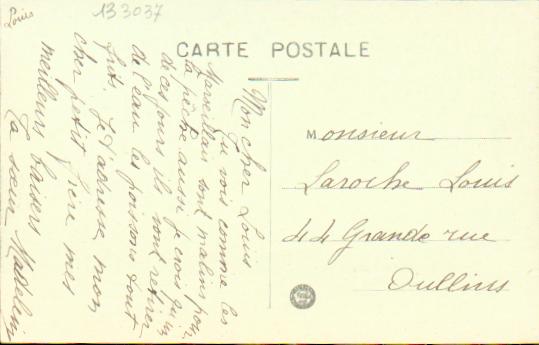 Louis
133037
CARTE POSTALE
Mon cher Louis
Tu vois comme les
Marseillais sont malins pour
la pêche aussi je crois qu'un
de ces jours ils vont retirer
de l'eau les poissons tout
frits. Je t'adresse mon
cher petit frère mes
meilleurs baisers
Ta sœur Madeleine
Monsieur
Laroche Louis
44 Grande rue
Oullins